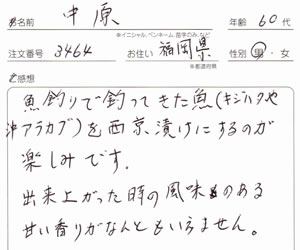 お名前 中原 年齢 60代
※イニシャル、ペンネーム、苗字のみ、など
注文番号 3464 お住い 福岡県 性別 男・女
※都道府県
ご感想
魚釣りで釣ってきた魚(キジハタや
沖アラカブ)を西京漬けにするのが
楽しみです。
出来上がった時の風味のある
甘い香りがなんともいえません。